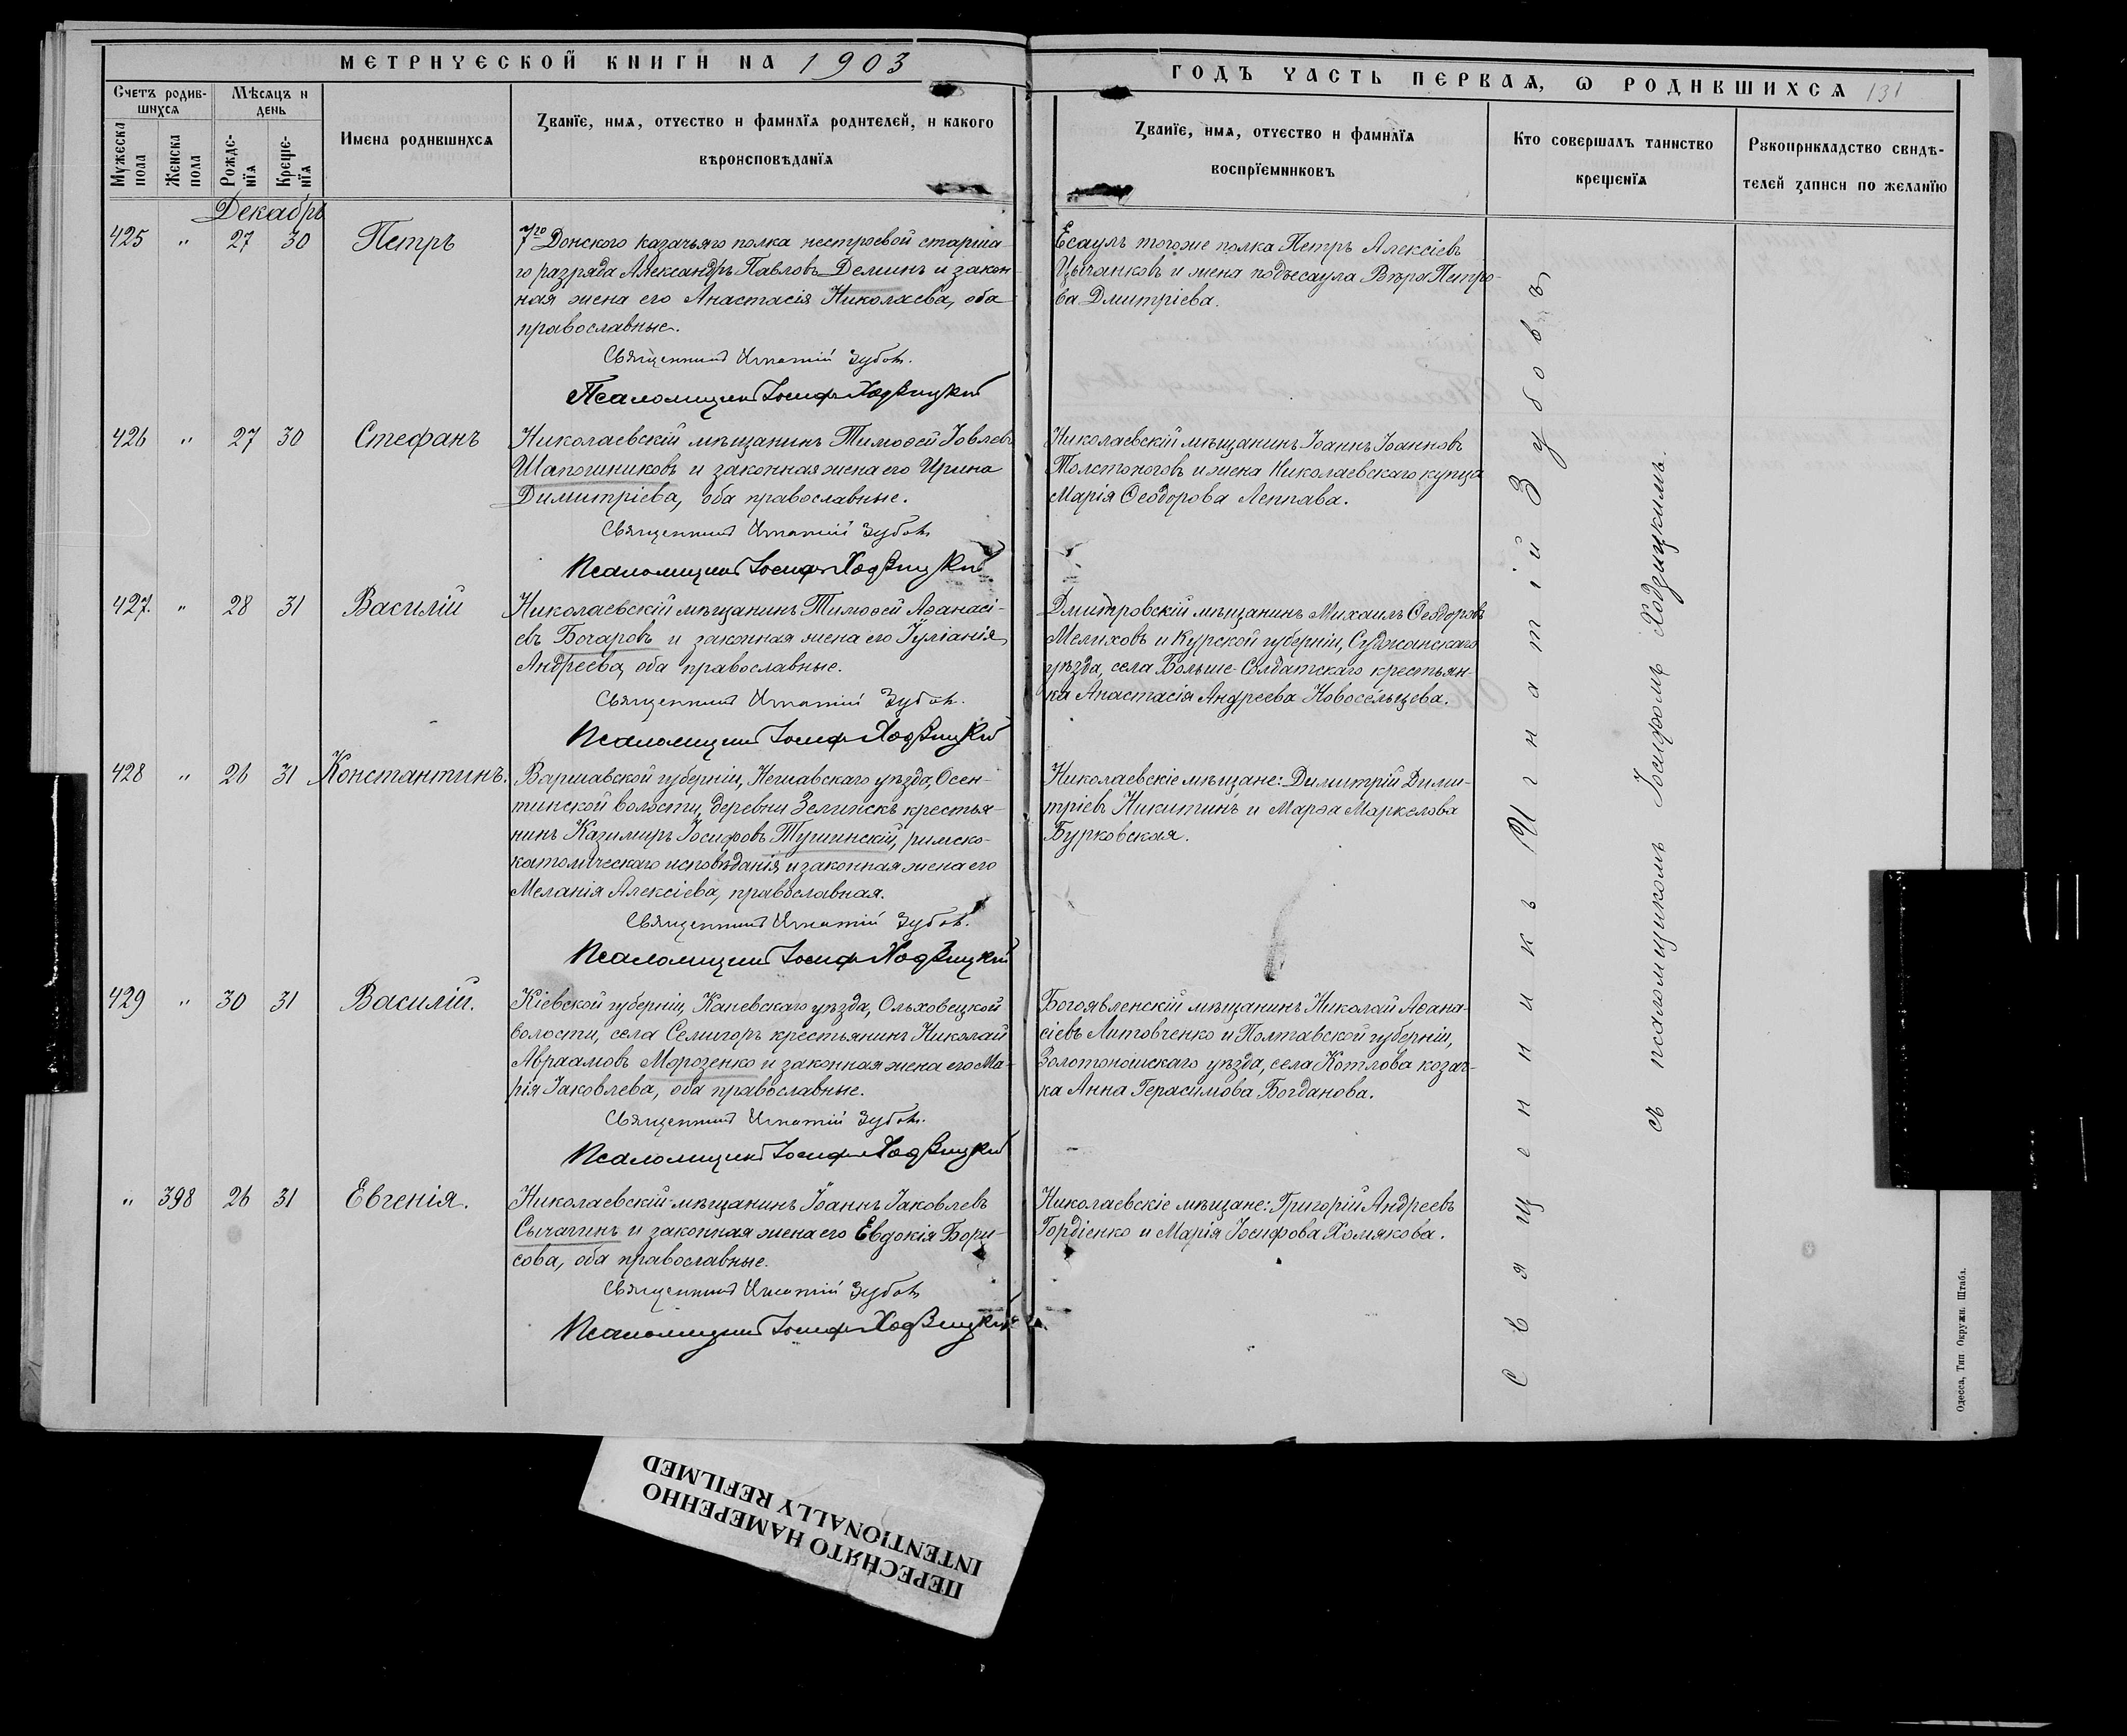 МЕТРИЧЕСКОЙ КНИГИ НА 1903
ГОДЪ ЧАСТЬ ПЕРВАѦ, Ѡ РОДИВШИХСѦ 131
Счетъ родив-
шихсѧ
Мѣсѧцъ и
день
Мужеска
пола
Женска
пола
Рожде-
нїѧ
Креще-
нїѧ
Имена родившихсѧ
Званїе, имѧ, отчество и фамилїѧ родителей, и какого
вѣроисповѣданїѧ
Званїе, имѧ, отчество и фамилїѧ
воспрїемниковъ
Кто совершалъ таинство
крещенїѧ
Рукоприкладство свидѣ-
телей записи по желанїю
Декабрь
425 " 27 30 Петръ
7го Донского казачьяго полка нестроевой старша-
го разряда Александръ Павловъ Деминъ и закон-
ная жена его Анастасія Николаева, оба
православные.
Священникъ Игнатій Зубовъ.
Псаломщикъ Іосифъ Ходзицкій
Есаулъ тогоже полка Петръ Алексіевъ
Цыганковъ и жена подъесаула Вѣра Петро-
ва Дмитріева.
426 " 27 30 Стефанъ
Николаевскій мѣщанинъ Тимоѳей Іовлевъ
Шапошниковъ и законная жена его Ирина
Димитріева, оба православные.
Священникъ Игнатій Зубовъ
Псаломщикъ Іосифъ Ходзицкій
Николаевскій мѣщанинъ Іоаннъ Іоанновъ
Толстоноговъ и жена Николаевскаго купца
Марія Ѳеодорова Леппава.
427. " 28 31 Василій
Николаевскій мѣщанинъ Тимоѳей Аѳанасі-
евъ Бочаровъ и законная жена его Іуліанія
Андреева, оба православные.
Священникъ Игнатій Зубовъ.
Псаломщикъ Іосифъ Ходзицкій
Дмитровскій мѣщанинъ Михаилъ Ѳеодоровъ
Мелиховъ и Курской губерніи, Суджанскаго
уѣзда, села Больше-Солдатскаго крестьян-
ка Анастасія Андреева Новосельцева.
428 " 26 31 Константинъ.
Варшавской губерніи, Нешавскаго уѣзда, Осен-
тинской волости, деревни Зелинскъ крестья-
нинъ Казимиръ Іосифовъ Тушинскій, римско-
католическаго исповѣданія и законная жена его
Меланія Алексіева, православная.
Священникъ Игнатій Зубовъ.
Псаломщикъ Іосифъ Ходзицкій
Николаевскіе мѣщане: Димитрій Дими-
тріевъ Никитинъ и Марѳа Маркелова
Бурковская.
429 " 30 31 Василій.
Кіевской губерніи, Каневскаго уѣзда, Ольховецкой
волости, села Селигоръ крестьянинъ Николай
Авраамовъ Морозенко и законная жена его Ма-
рія Іаковлева, оба православные.
Священникъ Игнатій Зубовъ.
Псаломщикъ Іосифъ Ходзицкій
Богоявленскій мѣщанинъ Николай Аѳана-
сіевъ Литовченко и Полтавской губерніи,
Золотоношскаго уѣзда, села Котлова козач-
ка Анна Герасимова Богданова.
" 398 26 31 Евгенія.
Николаевскій мѣщанинъ Іоаннъ Іаковлевъ
Сычагинъ и законная жена его Евдокія Бори-
сова, оба православные.
Священникъ Игнатій Зубовъ
Псаломщикъ Іосифъ Ходзицкій
Николаевскіе мѣщане: Григорій Андреевъ
Гордіенко и Марія Іосифова Хомякова.
Священникъ Игнатій Зубовъ
съ псаломщикомъ Іосифомъ Ходзицкимъ.
Одесса, Тип Окружн. Штаба.
ПЕРЕСНЯТО НАМЕРЕННО
INTENTIONALLY REFILMED